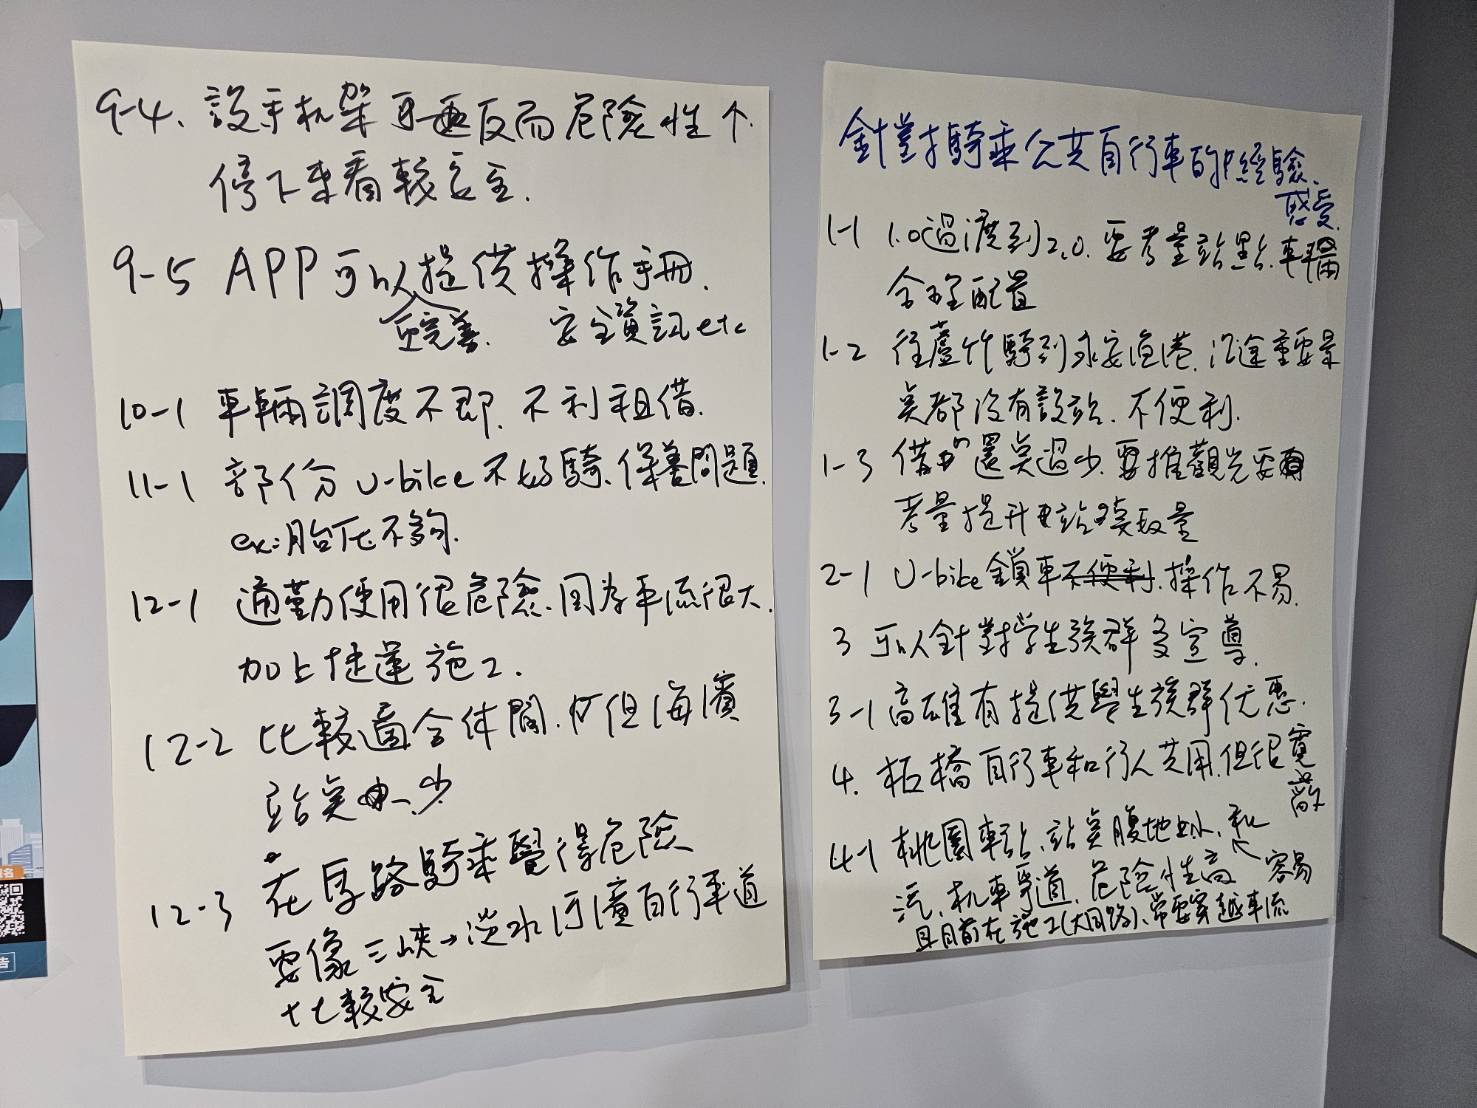 9-4. 設手机架可能反而危險性↑.
停下來看較安全.
9-5 APP可以提供操作手冊.
更完善. 安全資訊etc
10-1 車輛調度不即. 不利租借.
11-1 部份U-bike不好騎、保養問題.
ex:胎压不夠.
12-1 通勤使用很危險、因為車流很大.
加上捷運施工.
12-2 比較適合休閒. 但海濱
站點 少
12-3 在馬路騎乘覺得危險
要像三峽→淡水河濱自行車道
比較安全
針對騎乘公共自行車的經驗、
感受.
1-1 1.0過渡到2.0. 要考量站點.車輛
合理配置
1-2 往蘆竹騎到永安漁港. 沿途重要景
點都沒有設站. 不便利.
1-3 借還點過少. 要推觀光要
考量提升站點數量
2-1 U-bike鎖車不便利.操作不易.
3 可以針對學生族群多宣導.
3-1 高雄有提供學生族群优惠.
4. 板橋自行車和行人共用.但很寬
敞
4-1 桃園車站、站點腹地小、和
汽.机車爭道. 危險性高 容易
且目前在施工(大同路)、常要穿越車流